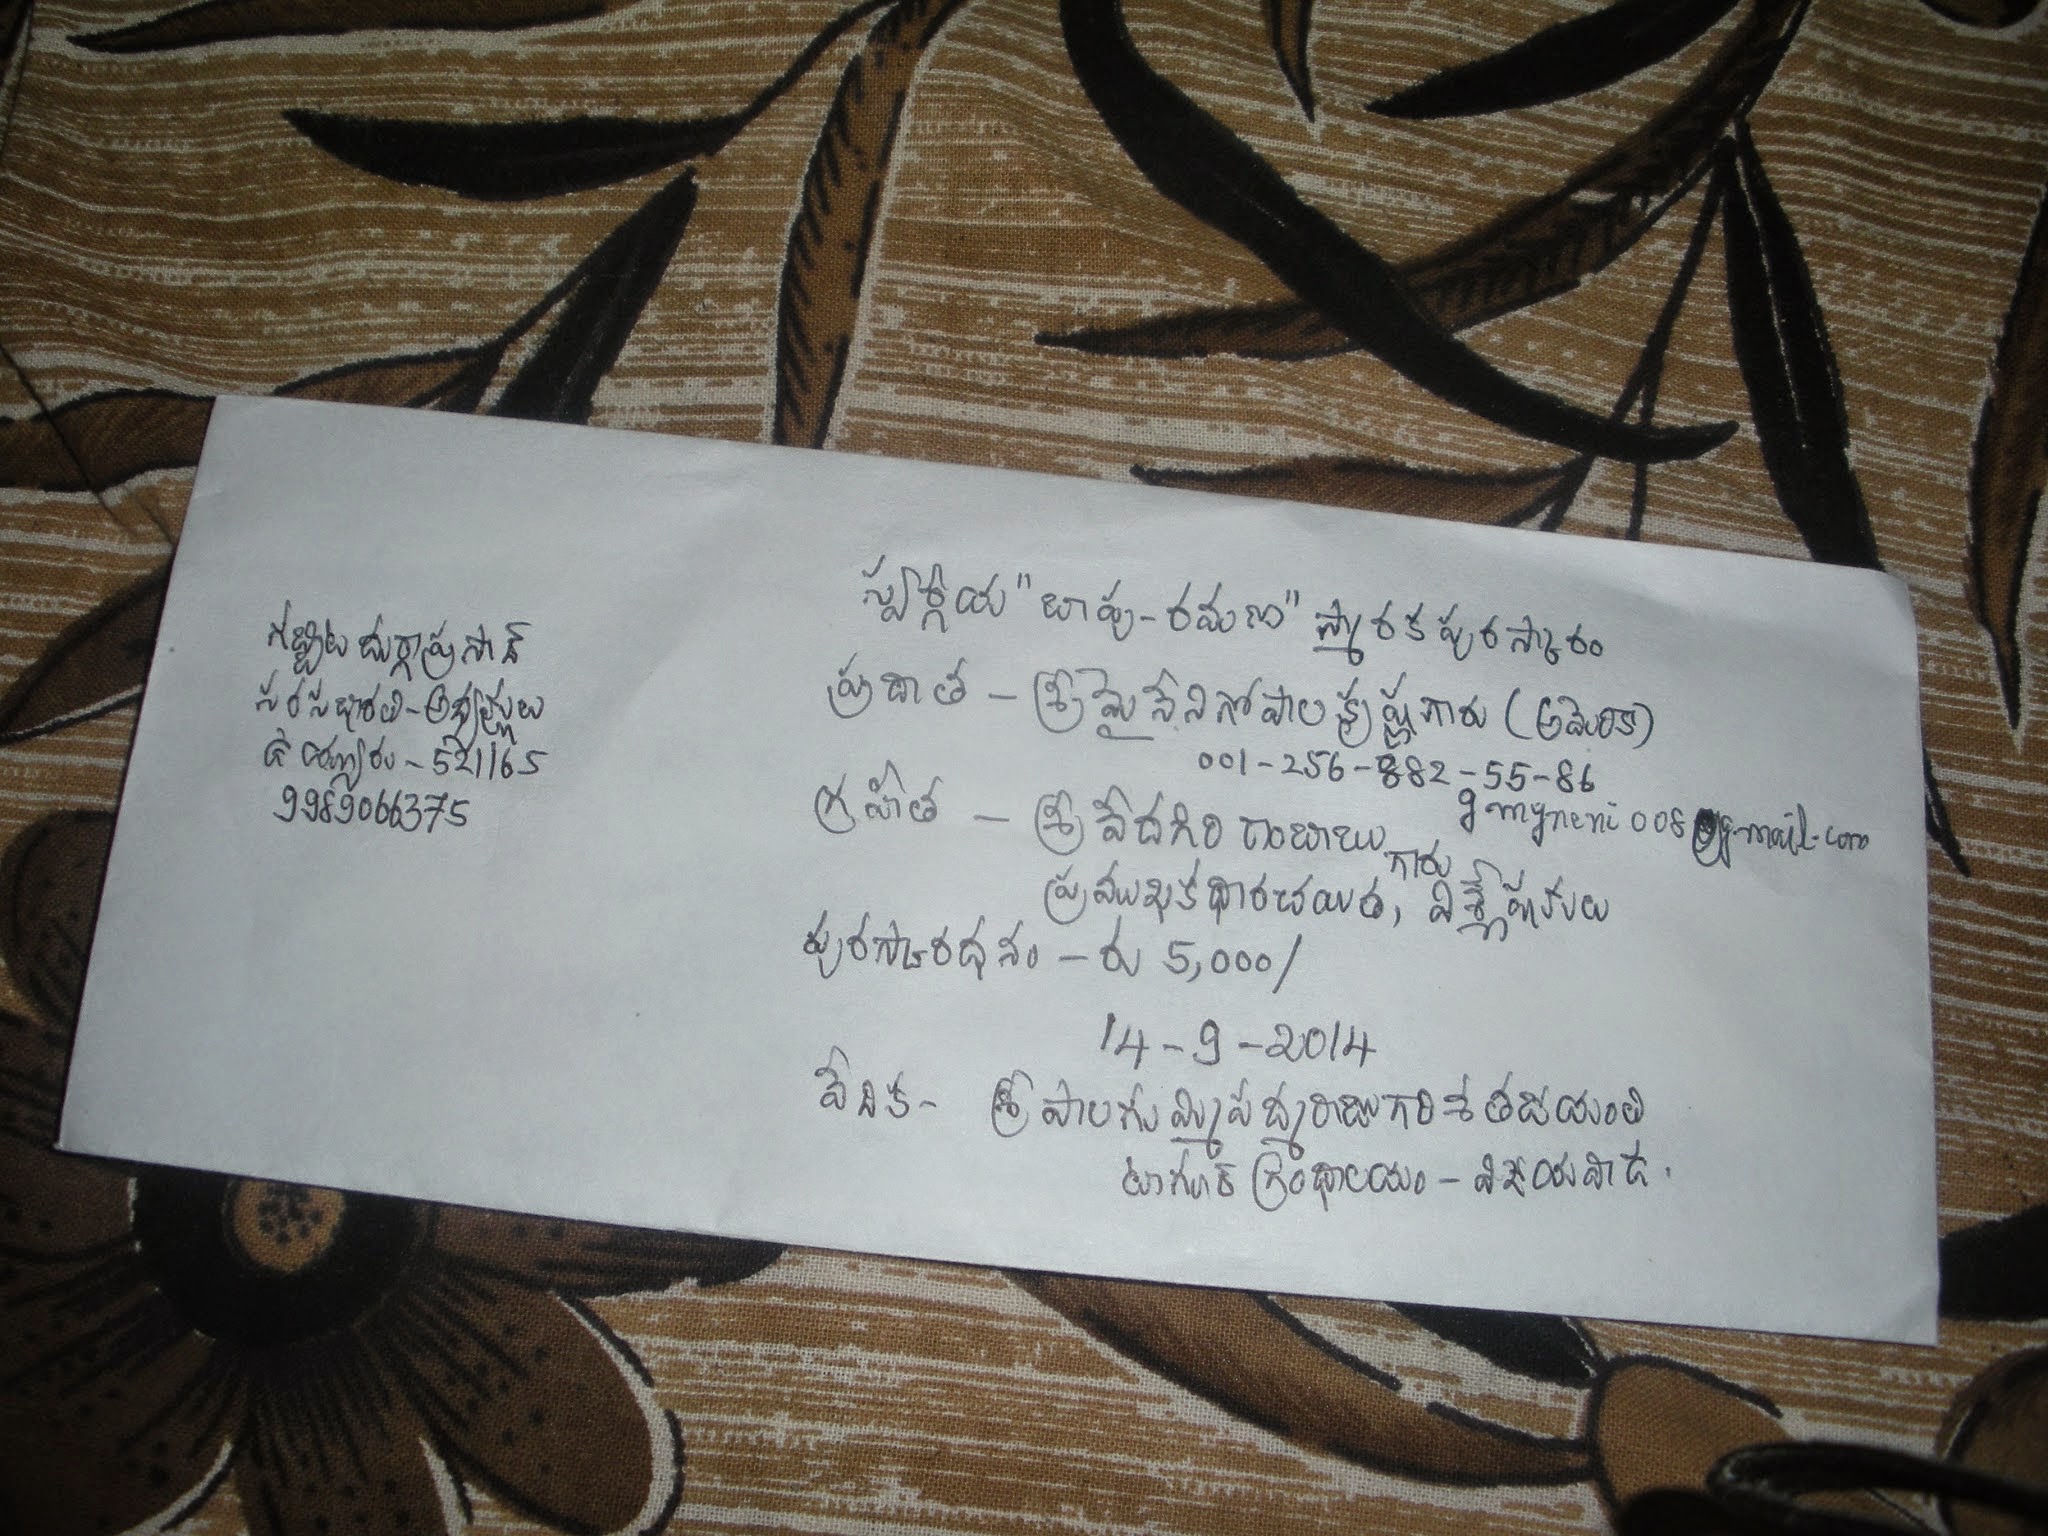 గబ్బిట దుర్గాప్రసాద్
సరసభారతి-అధ్యక్షులు
ఉయ్యూరు-521165
9989066375
స్వర్గీయ "బాపు-రమణ" స్మారక పురస్కారం
ప్రదాత - శ్రీ మైనేని గోపాలకృష్ణ గారు (అమెరికా)
001-256-882-55-86
gmyneni008@gmail.com
గ్రహీత - శ్రీ వేదగిరి రాంబాబు
గారు
ప్రముఖ కథారచయిత, విశ్లేషకులు
పురస్కారధనం - రు 5,000/
14-9-2014
వేదిక- శ్రీ పాలగుమ్మి పద్మరాజు గారి శతజయంతి
టాగూర్ గ్రంథాలయం - విజయవాడ.